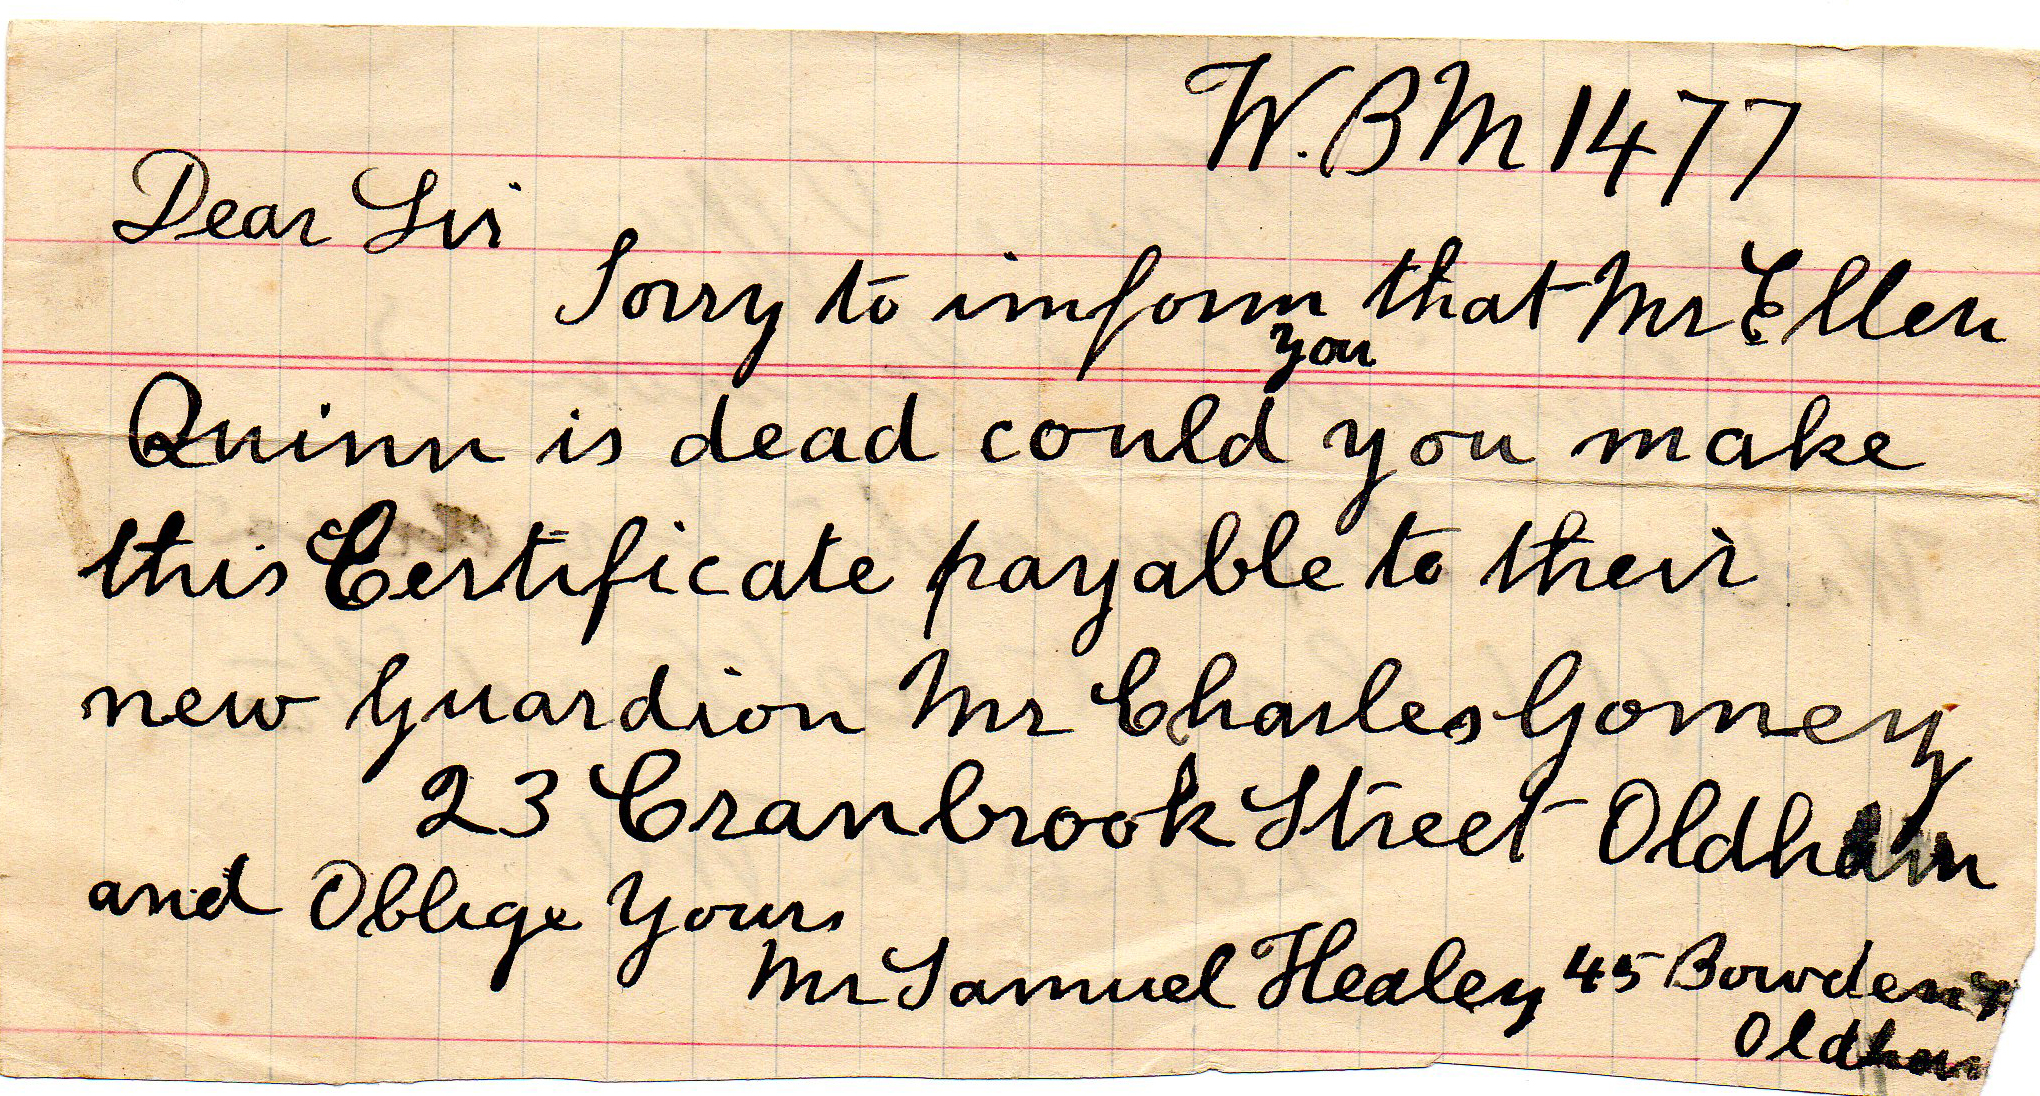 W.BM 1477
Dear Sir
Sorry to imform that Mr Ellen
you
Quinn is dead could you make
this Certificate payable to their
new Guardion Mr Charles Gomey
23 Cranbrook Street Oldham
and Oblige Yours
Mr Samuel Healey 45 Bowden
Oldham